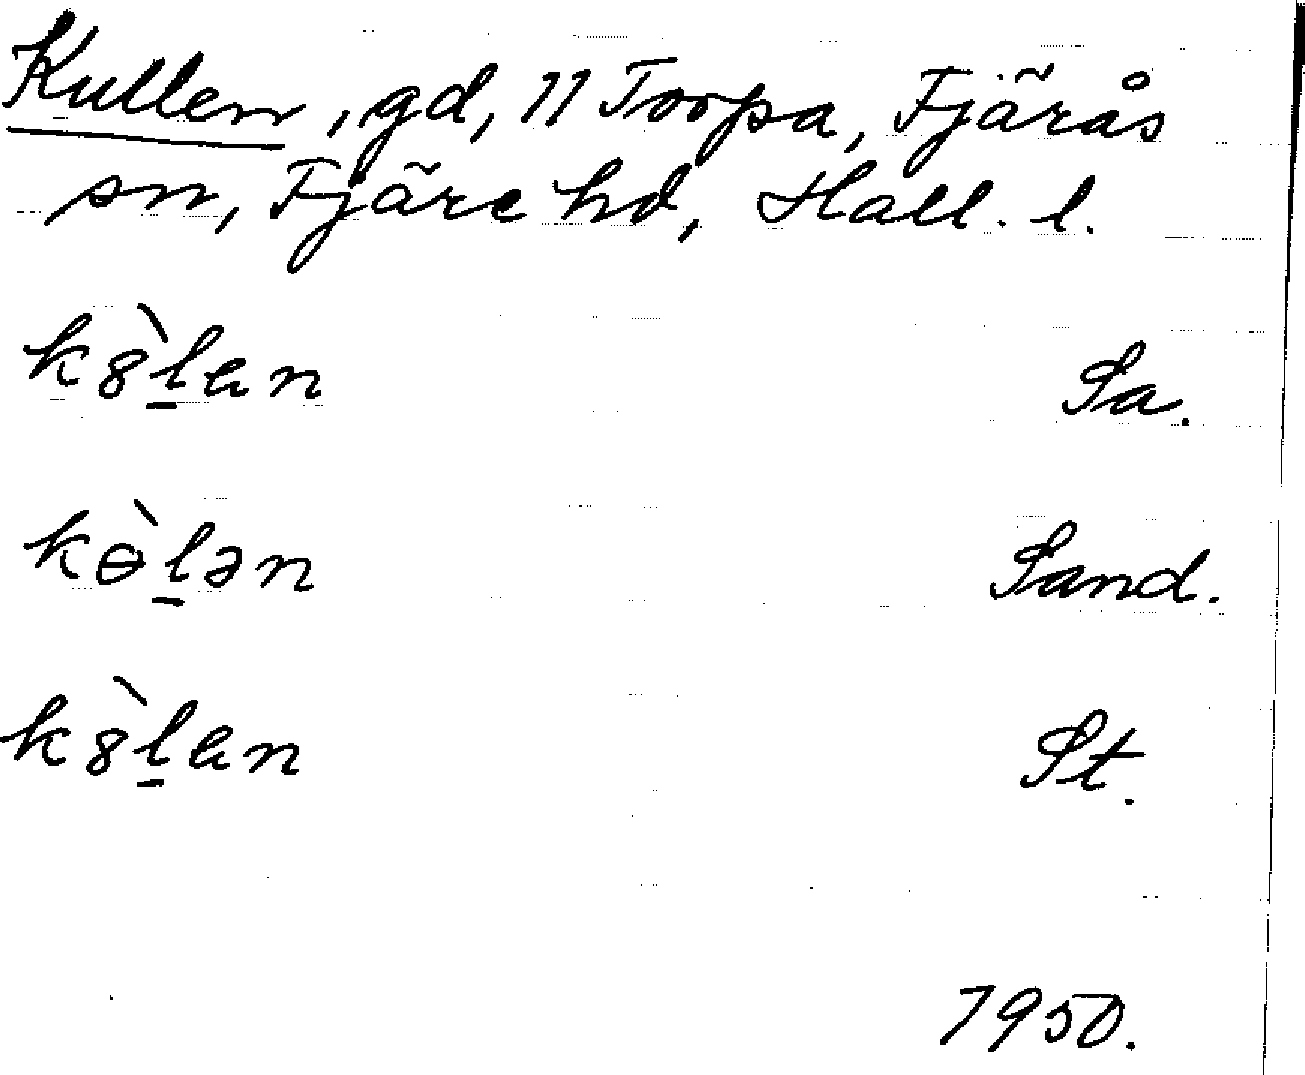 Kullen, gd, 11 Torpa, Fjärås
sn, Fjäre hd, Hall. l.
k8̀l̠ɐn Sa.
kɵ̀l̠ən Sand.
k8̀l̠ɐn St.
1950.